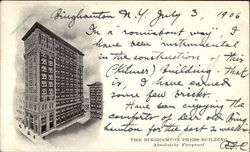 Binghamton N.Y. July 3, 1906
In a "roundabout way" I
have been instrumental
in the construction of this
(Kilmer) building - that
is, I have earned
some few bricks.
Have been enjoying the
comforts of dear old Bing-
hamton for the past 2 weeks.
THE BINGHAMTON PRESS BUILDING
Absolutely Fireproof